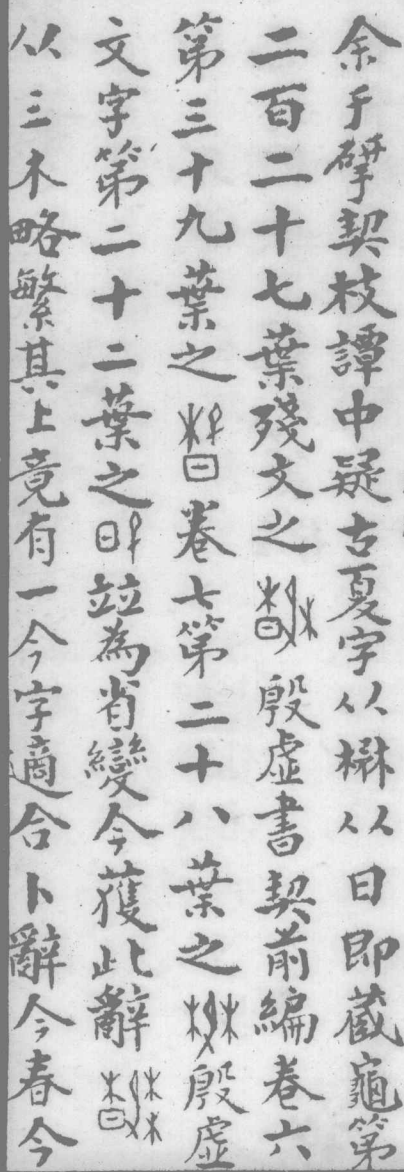 余于揅契枝譚中疑古夏字从楙从日即藏龜第
二百二十七葉殘文之 殷虛書契前編卷六
第三十九葉之 卷七第二十八葉之 殷虛
文字第二十二葉之 竝為省變今獲此辭
从三木略繁其上竟有一今字適合卜辭今春今